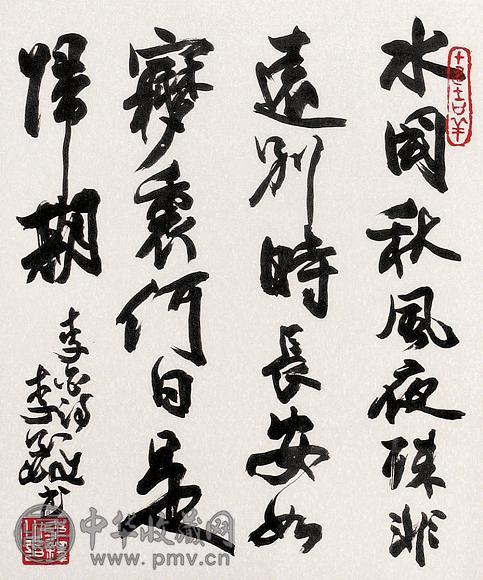 水國秋風夜殊非
遠別時長安如
夢裏何日是
歸期
李白詩
李
中华收藏网
www.pmv.cn